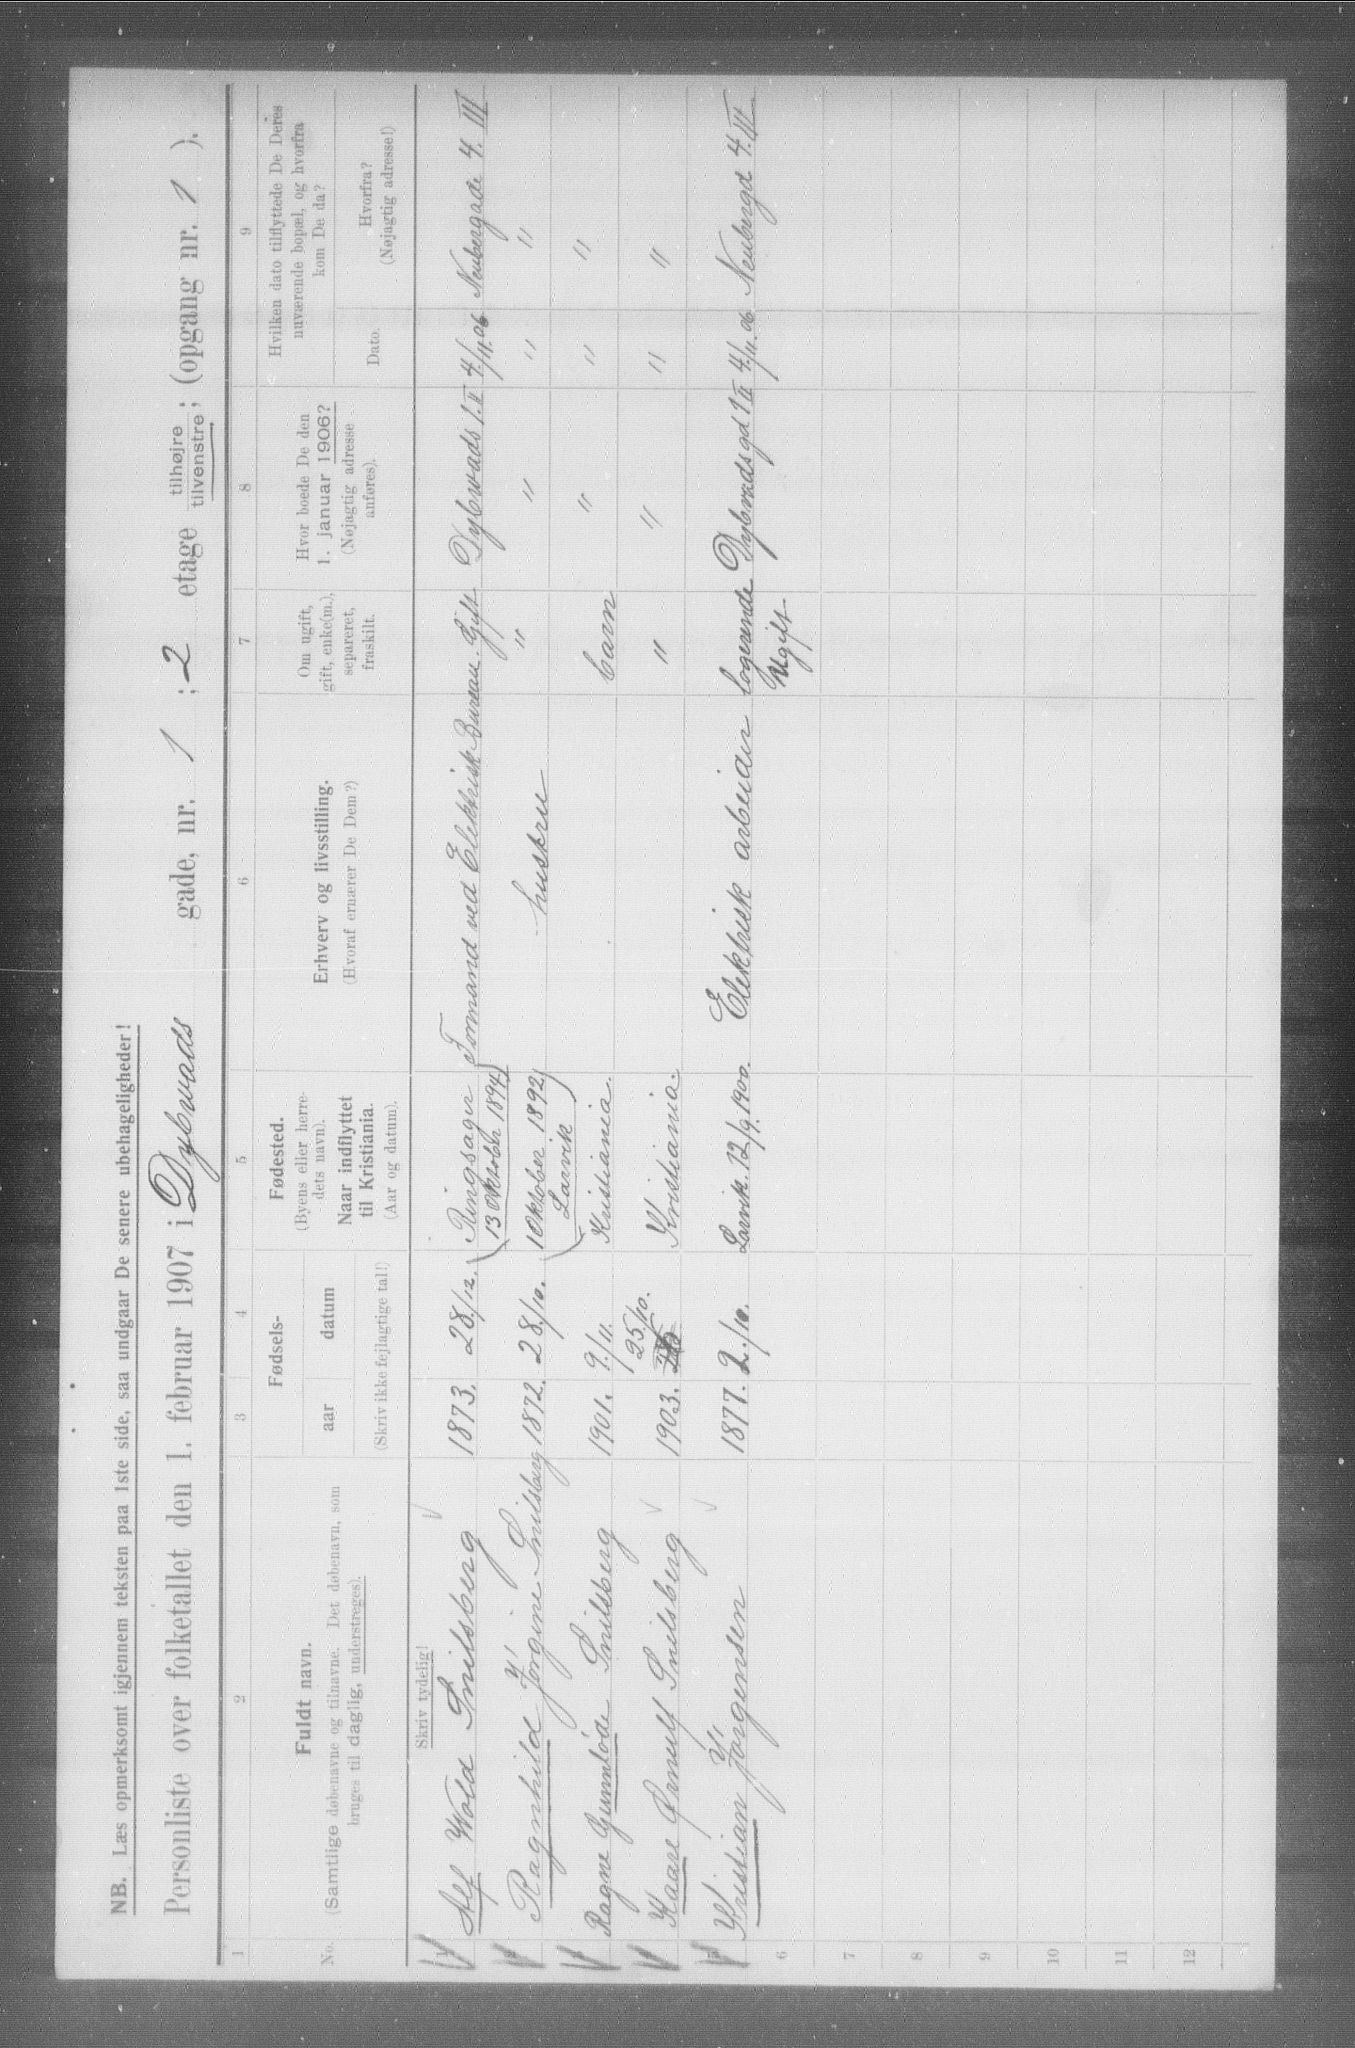 NB. Læs opmerksomt igjennem teksten paa 1ste side, saa undgaar De senere ubehageligheder!
Personliste over folketallet den 1. februar 1907 i Dybwads gade, nr. 1 ; 2 etage tilhøjre tilvenstre; (opgang nr. 1 ).
1 2 3 4 5 6 7 8 9
No.
Fuldt navn.
(Samtlige døbenavne og tilnavne. Det døbenavn, som
bruges til daglig, understreges).
Fødsels-
aar datum
(Skriv ikke fejlagtige tal!)
Fødested.
(Byens eller herre-
dets navn).
Naar indflyttet
til Kristiania.
(Aar og datum).
Erhverv og livsstilling.
(Hvoraf ernærer De Dem?)
Om ugift,
gift, enke(m.),
separeret,
fraskilt.
Hvor boede De den
1. januar 1906?
(Nøjagtig adresse
anføres).
Hvilken dato tilflyttede De Deres
nuværende bopæl, og hvorfra
kom De da?
Dato.
Hvorfra?
(Nøjagtig adresse!)
Skriv tydelig!
1 Alf Wold Smilsberg 1873. 28/12. Ringsager Formand ved Elektrisk Bureau. Gift Dybwads 1. II 4/11.06 Neubergade 4. III
13 Oktobr 1894
2 Ragnhild Jörgine Smilsberg 1872. 28/10. 1 Oktober 1892 huskru " " " "
Larvik
3 Ragne Gunnlöde Smilsberg 1901. 9/11. Kristiania. barn " " "
4 Kaare Ørnulf Smilsberg 1903. 25/10. Kristiania. " " " "
5 Kristian Jörgensen 1877. 2/10. Larvik. 12/9.1900. Elektrisk arbeider logerende Dybwadsgd 1 II 4/11.06 Neubergd 4. III
Ugift.
6
7
8
9
10
11
12